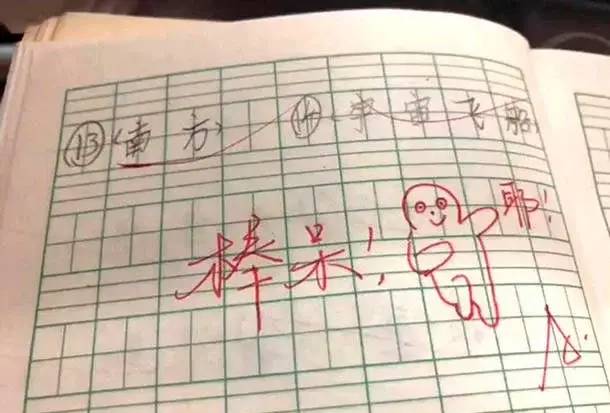 ⑬(南方) ⑭(宇宙飞船)
棒呆! 耶!